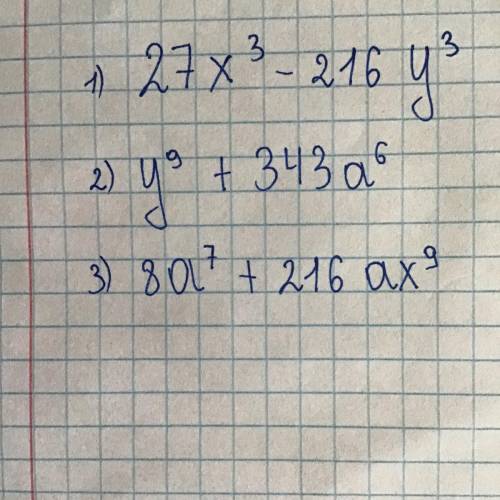 1) 27x³ - 216 y³
2) y⁹ + 343a⁶
3) 8a⁷ + 216 ax⁹